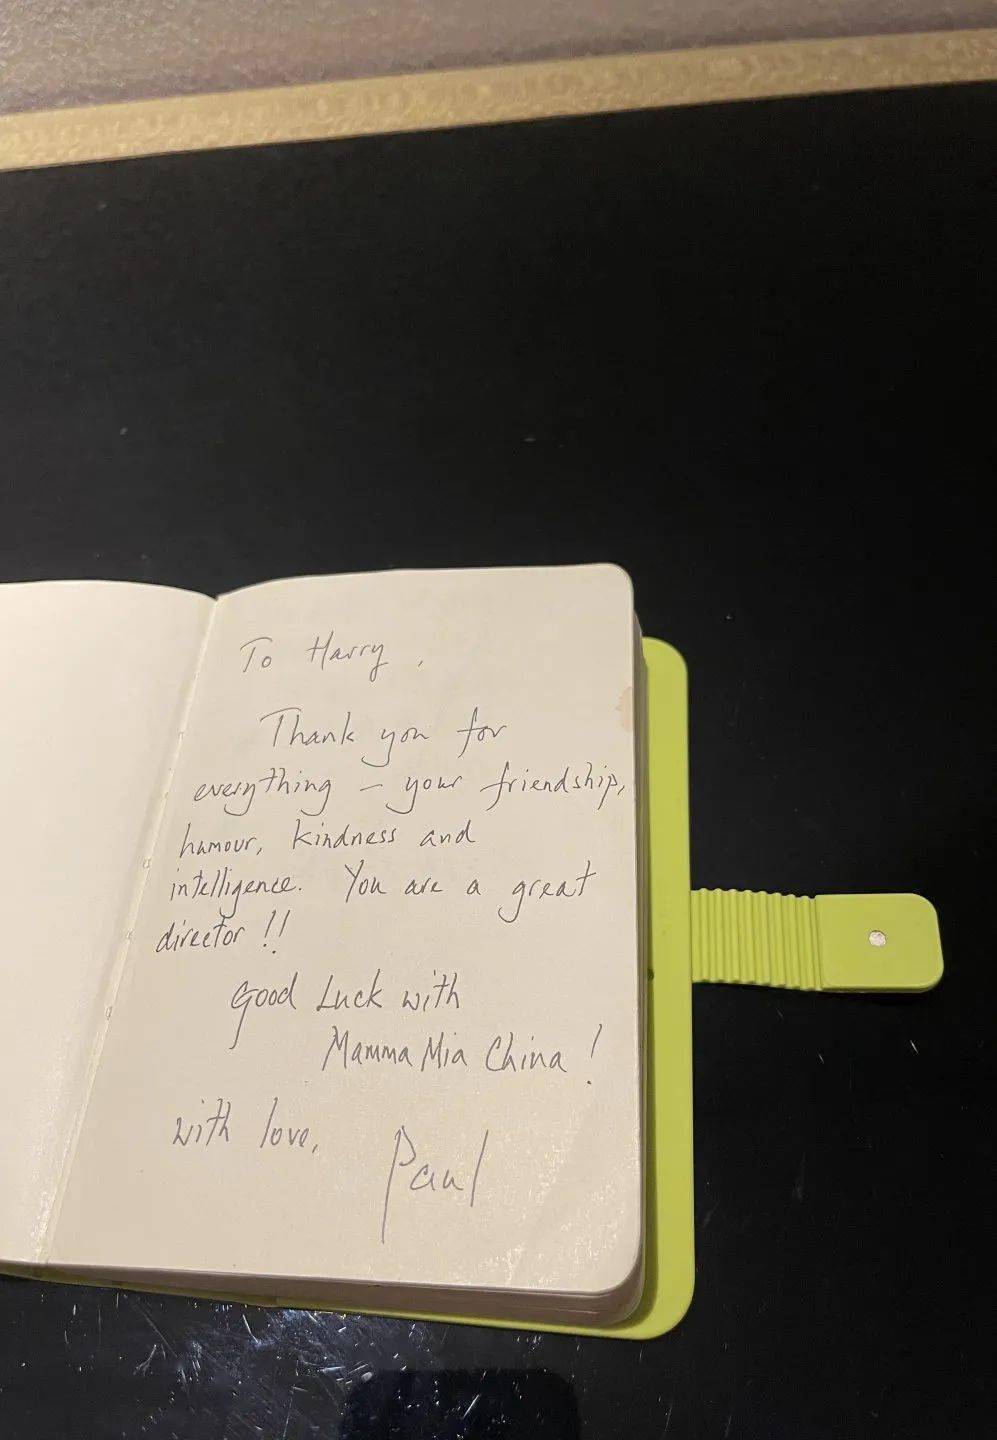 To Harry,
Thank you for
everything – your friendship,
humour, kindness and
intelligence. You are a great
director!!
Good Luck with
Mamma Mia China!
with love,
Paul